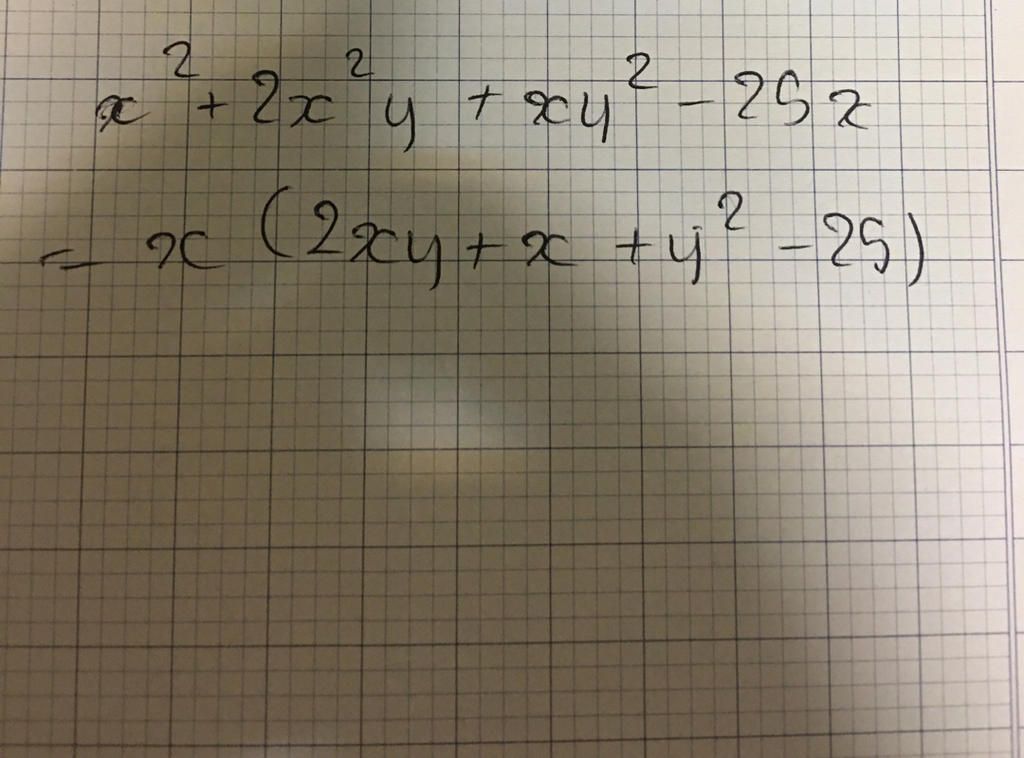 x² + 2x²y + xy² - 25x
= x (2xy + x + y² - 25)